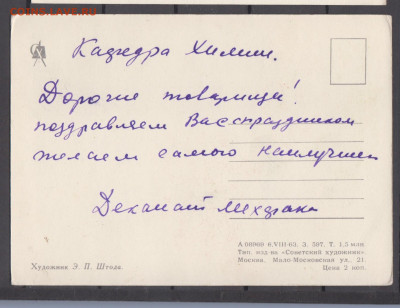 Кафедра Химии.
Дорогие товарищи!
поздравляем Вас с праздником
желаем самого наилучшего
Деканат Мехфака
А 09969 8.VIII-63. З. 507. Т. 1,5 млн
Тип. изд-ва «Советский художник».
Москва. Мало-Московская ул. 21.
Цена 2 коп.
Художник Э. П. Штольц.